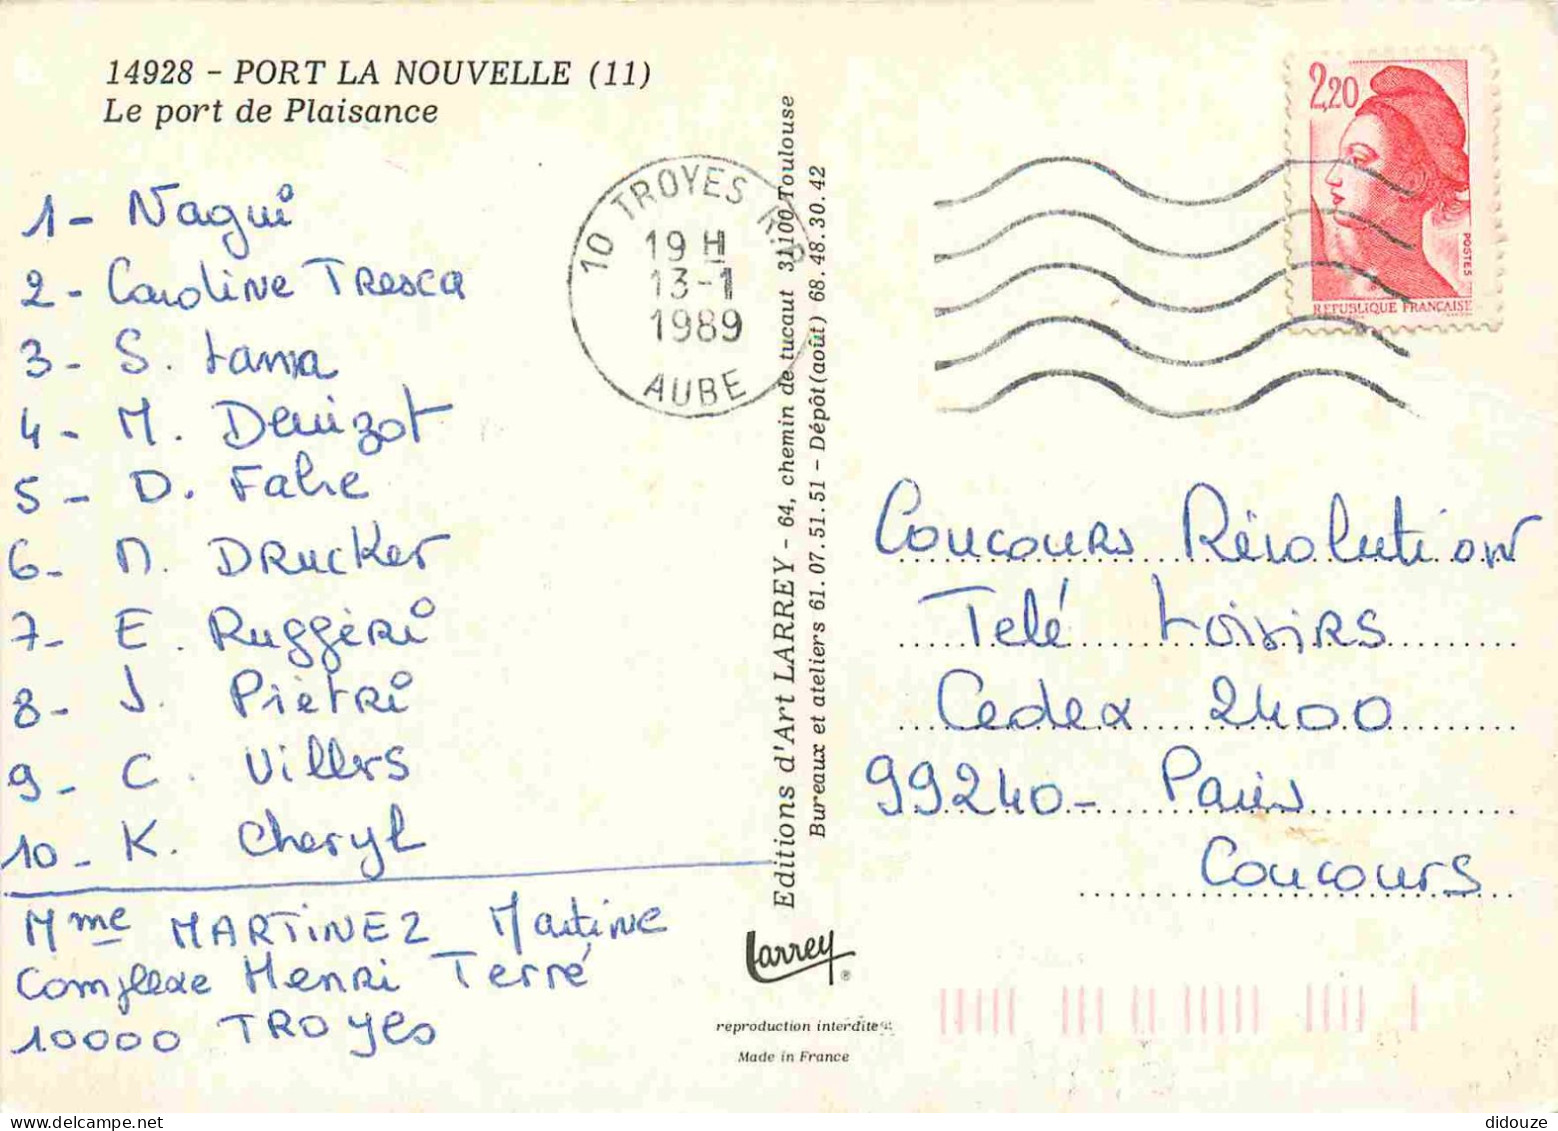 14928 - PORT LA NOUVELLE (11)
Le port de Plaisance
1- Nagui
2- Caroline Tresca
3- S. Lama
4- M. Denizot
5- D. Fabre
6- M. DRucker
7- E. Ruggiéri
8- J. Piétri
9- C. Villers
10- K. Cheryl
Mme MARTINEZ Martine
Complexe Henri Terré
10000 TROyes
10 TROYES R.P
19 H
13-1
1989
AUBE
Editions d'Art LARREY - 64, chemin de tucaut 31100 Toulouse
Bureaux et ateliers 61.07.51.51 - Dépôt (août) 68.48.30.42
Larrey
®
reproduction interdite
Made in France
2,20
POSTES
REPUBLIQUE FRANÇAISE
Concours Révolution
Telé Loisirs
Cedex 2400
99240- Paris
Concours
didouze